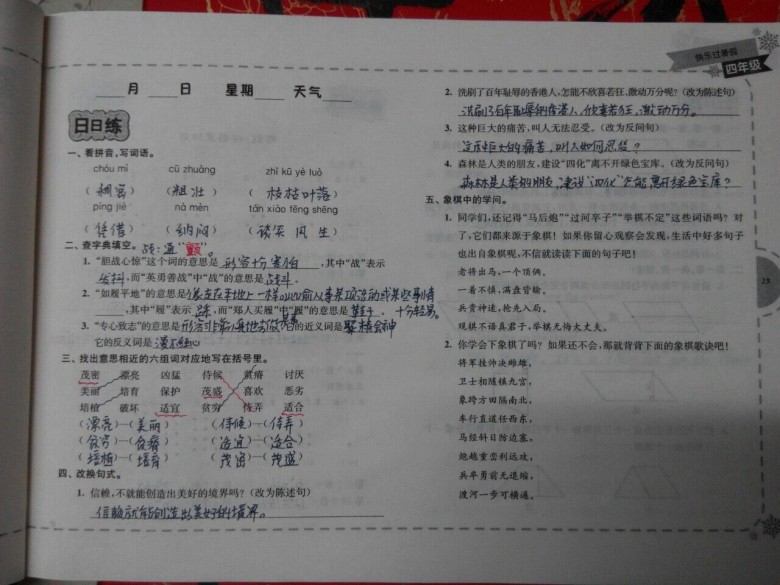 快乐过暑假
四年级
____月____日 星期____天气____
日日练
一、看拼音,写词语。
chóu mì cū zhuàng zhī kū yè luò
(稠密) (粗壮) (枝枯叶落)
píng jiè nà mèn tán xiào fēng shēng
(凭借) (纳闷) (谈笑风生)
二、查字典填空。
战:通“颤”。
1. “胆战心惊”这个词的意思是形容十分害怕,其中“战”表示
发抖,而“英勇善战”中“战”的意思是战斗.
2. “如履平地”的意思是像走在平地上一样
,其中“履”表示踩,而“郑人买履”中“履”的意思是鞋子.十分轻易。
3. “专心致志”的意思是形容的近义词是聚精会神
它的反义词是漫不经心
三、找出意思相近的六组词对应地写在括号里。
茂密 漂亮 凶猛 侍候 贫瘠 讨厌
美丽 培育 保护 茂盛 喜欢 恶劣
培植 破坏 适宜 贫穷 侍弄 适合
(漂亮)—(美丽) (侍候)—(侍弄)
(贫穷)—(贫瘠) (适宜)—(适合)
(培植)—(培育) (茂密)—(茂盛)
四、改换句式。
1. 信赖,不就能创造出美好的境界吗?(改为陈述句)
信赖就能创造出美好的境界。
2. 洗刷了百年耻辱的香港人,怎能不欣喜若狂,激动万分呢?(改为陈述句)
洗刷了百年耻辱的香港人,欣喜若狂,激动万分。
3. 这种巨大的痛苦,叫人无法忍受。(改为反问句)
这种巨大的痛苦,叫人如何忍受?
4. 森林是人类的朋友,建设“四化”离不开绿色宝库。(改为反问句)
森林是人类的朋友,建设“四化”怎能离开绿色宝库?
五、象棋中的学问。
1. 同学们,还记得“马后炮”“过河卒子”“举棋不定”这些词语吗?对
了,它们都来源于象棋!如果你留心观察会发现,生活中好多句子
也出自象棋呢,不信就读读下面的句子吧!
老将出马,一个顶俩。
一着不慎,满盘皆输。
兵贵神速,抢先入局。
观棋不语真君子,举棋无悔大丈夫。
2. 你学会下象棋了吗?如果还不会,那就背背下面的象棋歌诀吧!
将军拄帅决雌雄,
卫士相随镇九宫,
象跨方田隔南北,
车行直道任西东,
马经斜日防边塞,
炮越重峦利远攻,
兵卒勇前无退缩,
渡河一步可横通。
29